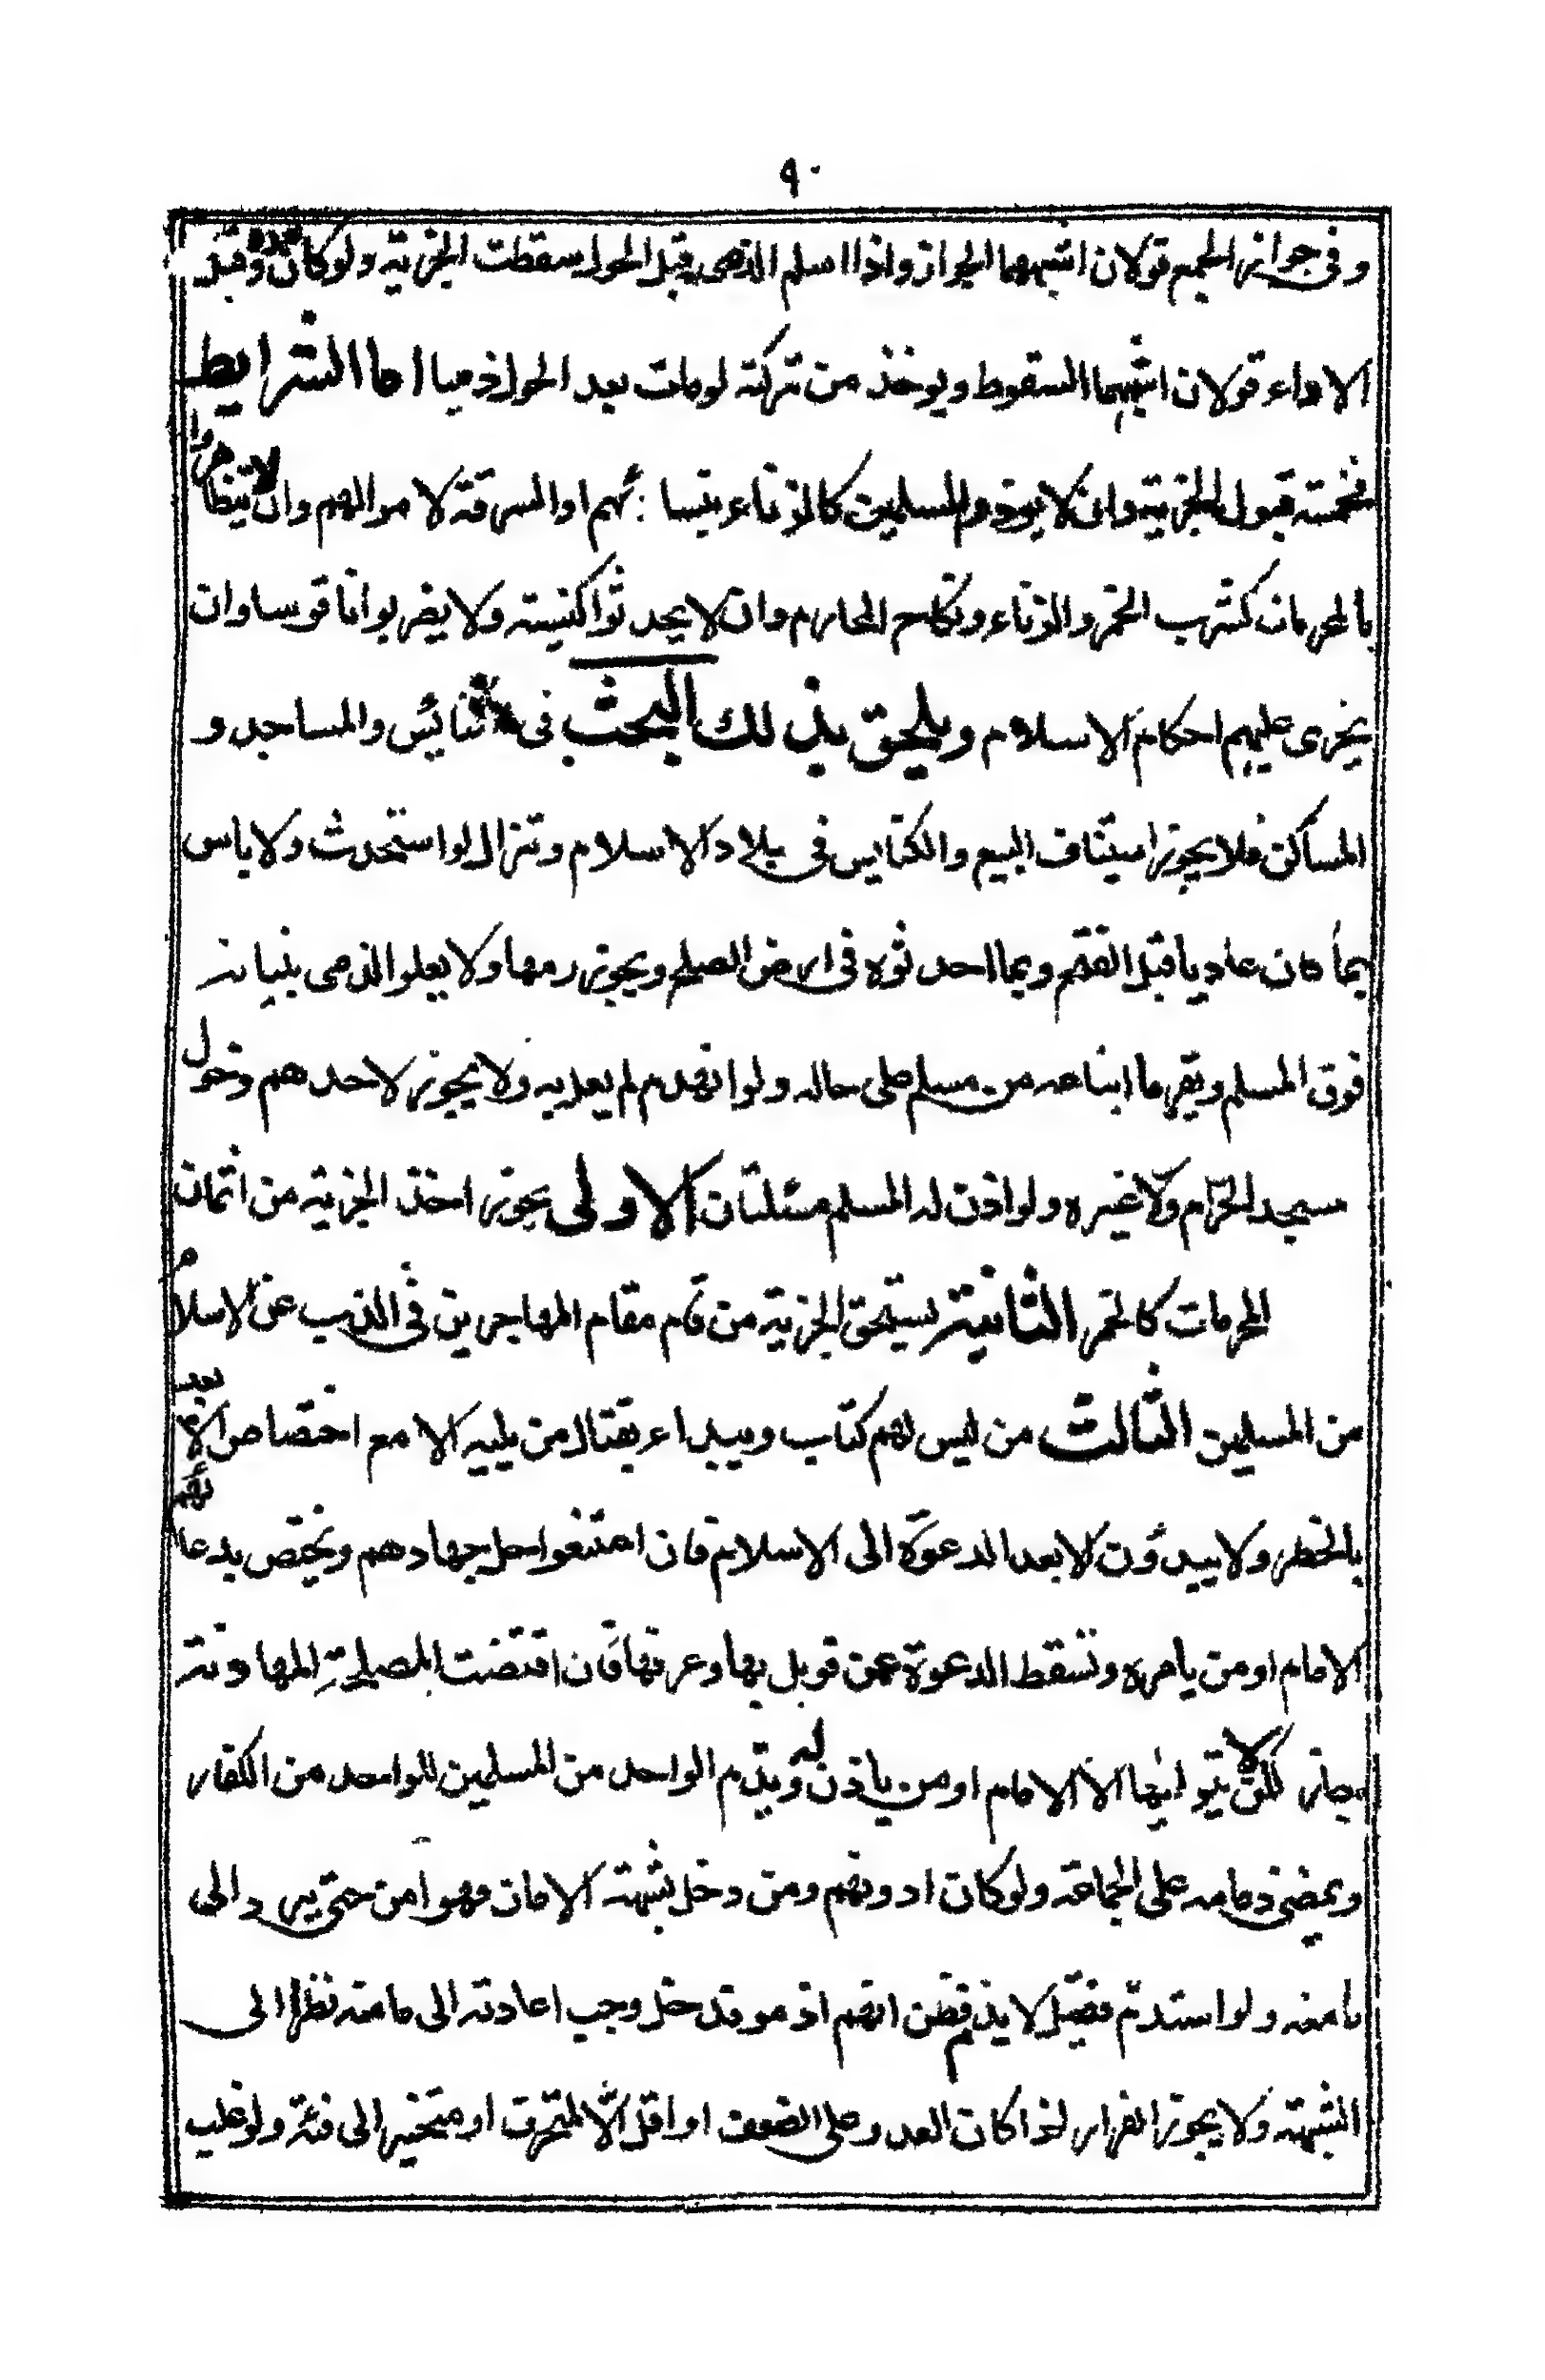 ٩٠
وفى جواز الجمع قولان اشبههما الجواز واذا اسلم الذمى قبل الحول سقطت الجزية ولو كان بعده وقبل
الاداء قولان اشبههما السقوط ويوخذ من تركته لو مات بعد الحول ذميا اما الشرايط
فخمسة قبول الجزية وان لا يوذوا المسلمين كالزناء بنسائهم او السرقة لاموالهم وان لا يتظاهروا
بالمحرمات كشرب الخمر والزناء ونكاح المحارم وان لا يحدثوا كنيسة ولا يضربوا ناقوسا وان
يجرى عليهم احكام الاسلام ويلحق بذلك البحث فى الكنائس والمساجد و
المساكن فلا يجوز استيناف البيع والكنايس فى بلاد الاسلام وتزال لو استحدث ولا باس
بما كان عاديا قبل الفتح وبما احدثوه فى ارض الصلح ويجوز رمها ولا يعلو الذمى بنيانه
فوق المسلم ويقر ما ابتاعه من مسلم على حاله ولو انهدم لم يعل به ولا يجوز لاحدهم دخول
مسجد الحرام ولا غيره ولو اذن له المسلم مسئلتان الاولى يجوز اخذ الجزية من اثمان
المحرمات كالخمر الثانية يستحق الجزية من قام مقام المهاجرين فى الذب عن الاسلام
من المسلمين الثالث من ليس لهم كتاب ويبداء بقتال من يليه الا مع اختصاص الابعد
بالخطر ولا يبدؤن الا بعد الدعوة الى الاسلام فان امتنعوا حل جهادهم ويختص بدعائهم
الامام او من يامره وتسقط الدعوة عمن قوبل بها وعرفها فان اقتضت المصلحة المهادنة
جاز لكن لا يتولیها الا الامام او من ياذن له ويذم الواحد من المسلمين للواحد من الكفار
ويمضى ذمامه على الجماعة ولو كان ادونهم ومن دخل بشبهة الامان فهو آمن حتى يرد الى
مامنه ولو استذم فقيل لا يذم فظن انهم اذموه قد خل وجب اعادته الى مامنه نظرا الى
الشبهة ولا يجوز الفرار اذا كان العدو على الضعف او اقل الّا لمتحرف او متحيز الى فئة ولو غلب